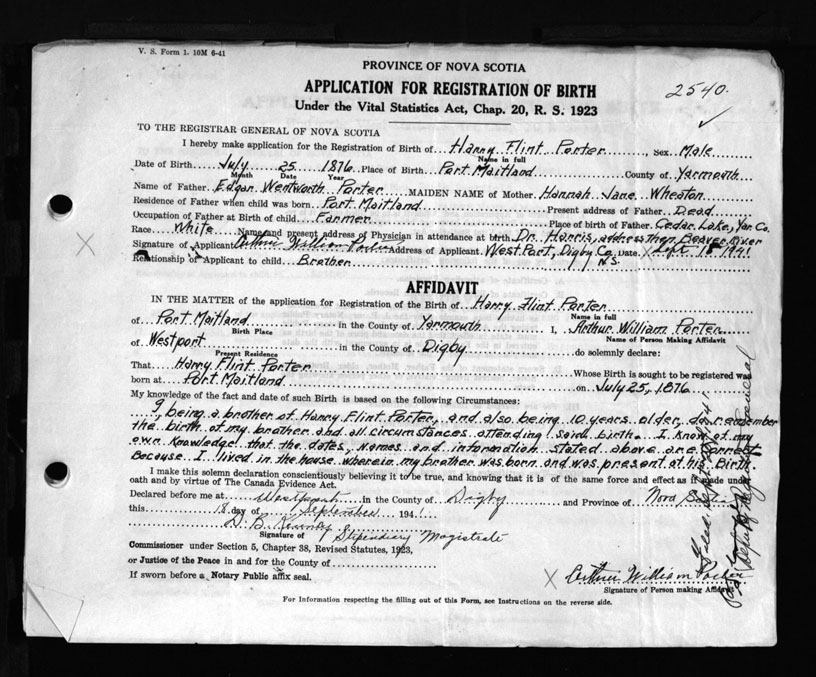 V. S. Form 1. 10M 6-41
PROVINCE OF NOVA SCOTIA
APPLICATION FOR REGISTRATION OF BIRTH
2540.
Under the Vital Statistics Act, Chap. 20, R. S. 1923
TO THE REGISTRAR GENERAL OF NOVA SCOTIA
I hereby make application for the Registration of Birth of Harry Flint Porter, Sex Male
Name in full
Date of Birth July 25 1876 Place of Birth Port Maitland County of Yarmouth
Month Date Year
Name of Father Edgar Wentworth Porter MAIDEN NAME of Mother Hannah Jane Wheaton
Residence of Father when child was born Port Maitland Present address of Father Dead
Occupation of Father at Birth of child Farmer Place of birth of Father Cedar Lake, Yar. Co.
Race White Name and present address of Physician in attendance at birth Dr. Harris, address then Beaver River
Signature of Applicant Arthur William Porter Address of Applicant West Port, Digby Co. N.S. Date Sept 18 1941
Relationship of Applicant to child Brother
AFFIDAVIT
IN THE MATTER of the application for Registration of the Birth of Harry Flint Porter
Name in full
of Port Maitland in the County of Yarmouth I, Arthur William Porter
Birth Place Name of Person Making Affidavit
of Westport in the County of Digby do solemnly declare:
Present Residence
That Harry Flint Porter Whose Birth is sought to be registered was
born at Port Maitland on July 25, 1876
My knowledge of the fact and date of such Birth is based on the following Circumstances:
I, being a brother of Harry Flint Porter, and also being 10 years older, do remember
the birth of my brother and all circumstances attending said birth. I know of my
own Knowledge that the dates, names and information stated above are correct
Because I lived in the house wherein my brother was born and was present at his Birth.
I make this solemn declaration conscientiously believing it to be true, and knowing that it is of the same force and effect as if made under
oath and by virtue of The Canada Evidence Act.
Declared before me at Westport in the County of Digby and Province of Nova Scotia
this 18 day of September 1941
D. B.
Signature of Stipendiary Magistrate
Commissioner under Section 5, Chapter 38, Revised Statutes, 1923,
or Justice of the Peace in and for the County of
If sworn before a Notary Public affix seal.
X Arthur William Porter
Signature of Person making Affidavit
For Information respecting the filling out of this Form, see Instructions on the reverse side.